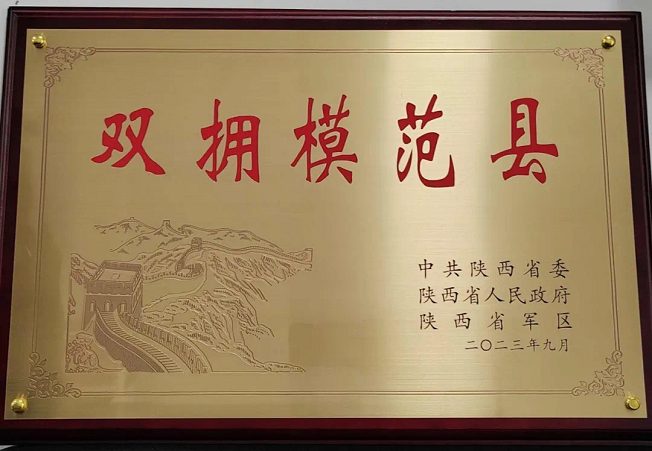 双拥模范县
中共陕西省委
陕西省人民政府
陕西省军区
二〇二三年九月